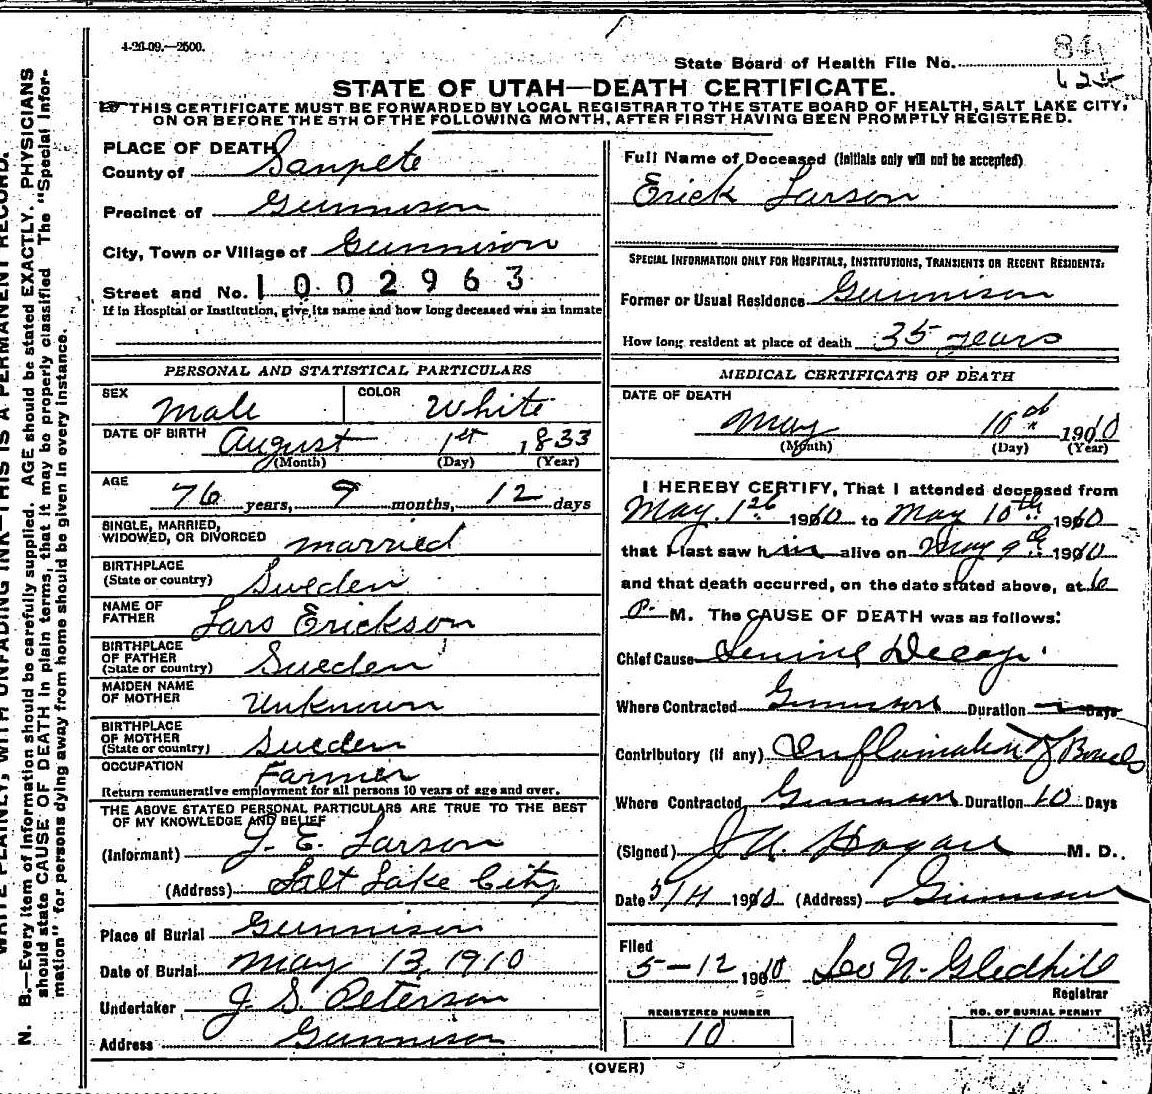 4-20-09.—2500.
State Board of Health File No. 84
125
STATE OF UTAH—DEATH CERTIFICATE.
THIS CERTIFICATE MUST BE FORWARDED BY LOCAL REGISTRAR TO THE STATE BOARD OF HEALTH, SALT LAKE CITY,
ON OR BEFORE THE 5TH OF THE FOLLOWING MONTH, AFTER FIRST HAVING BEEN PROMPTLY REGISTERED.
PLACE OF DEATH
County of Sanpete
Precinct of Gunnison
City, Town or Village of Gunnison
Street and No. 1002963
If in Hospital or Institution, give its name and how long deceased was an inmate
PERSONAL AND STATISTICAL PARTICULARS
SEX Male COLOR White
DATE OF BIRTH August 1st 1833
(Month) (Day) (Year)
AGE 76 years, 9 months, 12 days
SINGLE, MARRIED,
WIDOWED, OR DIVORCED married
BIRTHPLACE
(State or country) Sweden
NAME OF
FATHER Lars Erickson
BIRTHPLACE
OF FATHER
(State or country) Sweden
MAIDEN NAME
OF MOTHER Unknown
BIRTHPLACE
OF MOTHER
(State or country) Sweden
OCCUPATION Farmer
Return remunerative employment for all persons 10 years of age and over.
THE ABOVE STATED PERSONAL PARTICULARS ARE TRUE TO THE BEST
OF MY KNOWLEDGE AND BELIEF
(Informant) J. E. Larson
(Address) Salt Lake City
Place of Burial Gunnison
Date of Burial May 13, 1910
Undertaker J. S. Peterson
Address Gunnison
Full Name of Deceased (Initials only will not be accepted)
Erick Larson
SPECIAL INFORMATION ONLY FOR HOSPITALS, INSTITUTIONS, TRANSIENTS OR RECENT RESIDENTS:
Former or Usual Residence Gunnison
How long resident at place of death 35 years
MEDICAL CERTIFICATE OF DEATH
DATE OF DEATH
May 10th 1910
(Month) (Day) (Year)
I HEREBY CERTIFY, That I attended deceased from
May 1st 1910 to May 10th 1910
that I last saw him alive on May 9th 1910
and that death occurred, on the date stated above, at 6
P. M. The CAUSE OF DEATH was as follows:
Chief Cause Senile Decay.
Where Contracted Gunnison Duration Days
Contributory (if any) Inflamation of Bowels
Where Contracted Gunnison Duration 10 Days
(Signed) J A. Hagan M. D.
Date 5/14 1910 (Address) Gunnison
Filed
5-12 1910 Leo N. Gledhill
Registrar
REGISTERED NUMBER NO. OF BURIAL PERMIT
10 10
(OVER)
WRITE PLAINLY, WITH UNFADING INK—THIS IS A PERMANENT RECORD.
N. B.—Every item of information should be carefully supplied. AGE should be stated EXACTLY. PHYSICIANS
should state CAUSE OF DEATH in plain terms, that it may be properly classified. The "Special Infor-
mation" for persons dying away from home should be given in every instance.